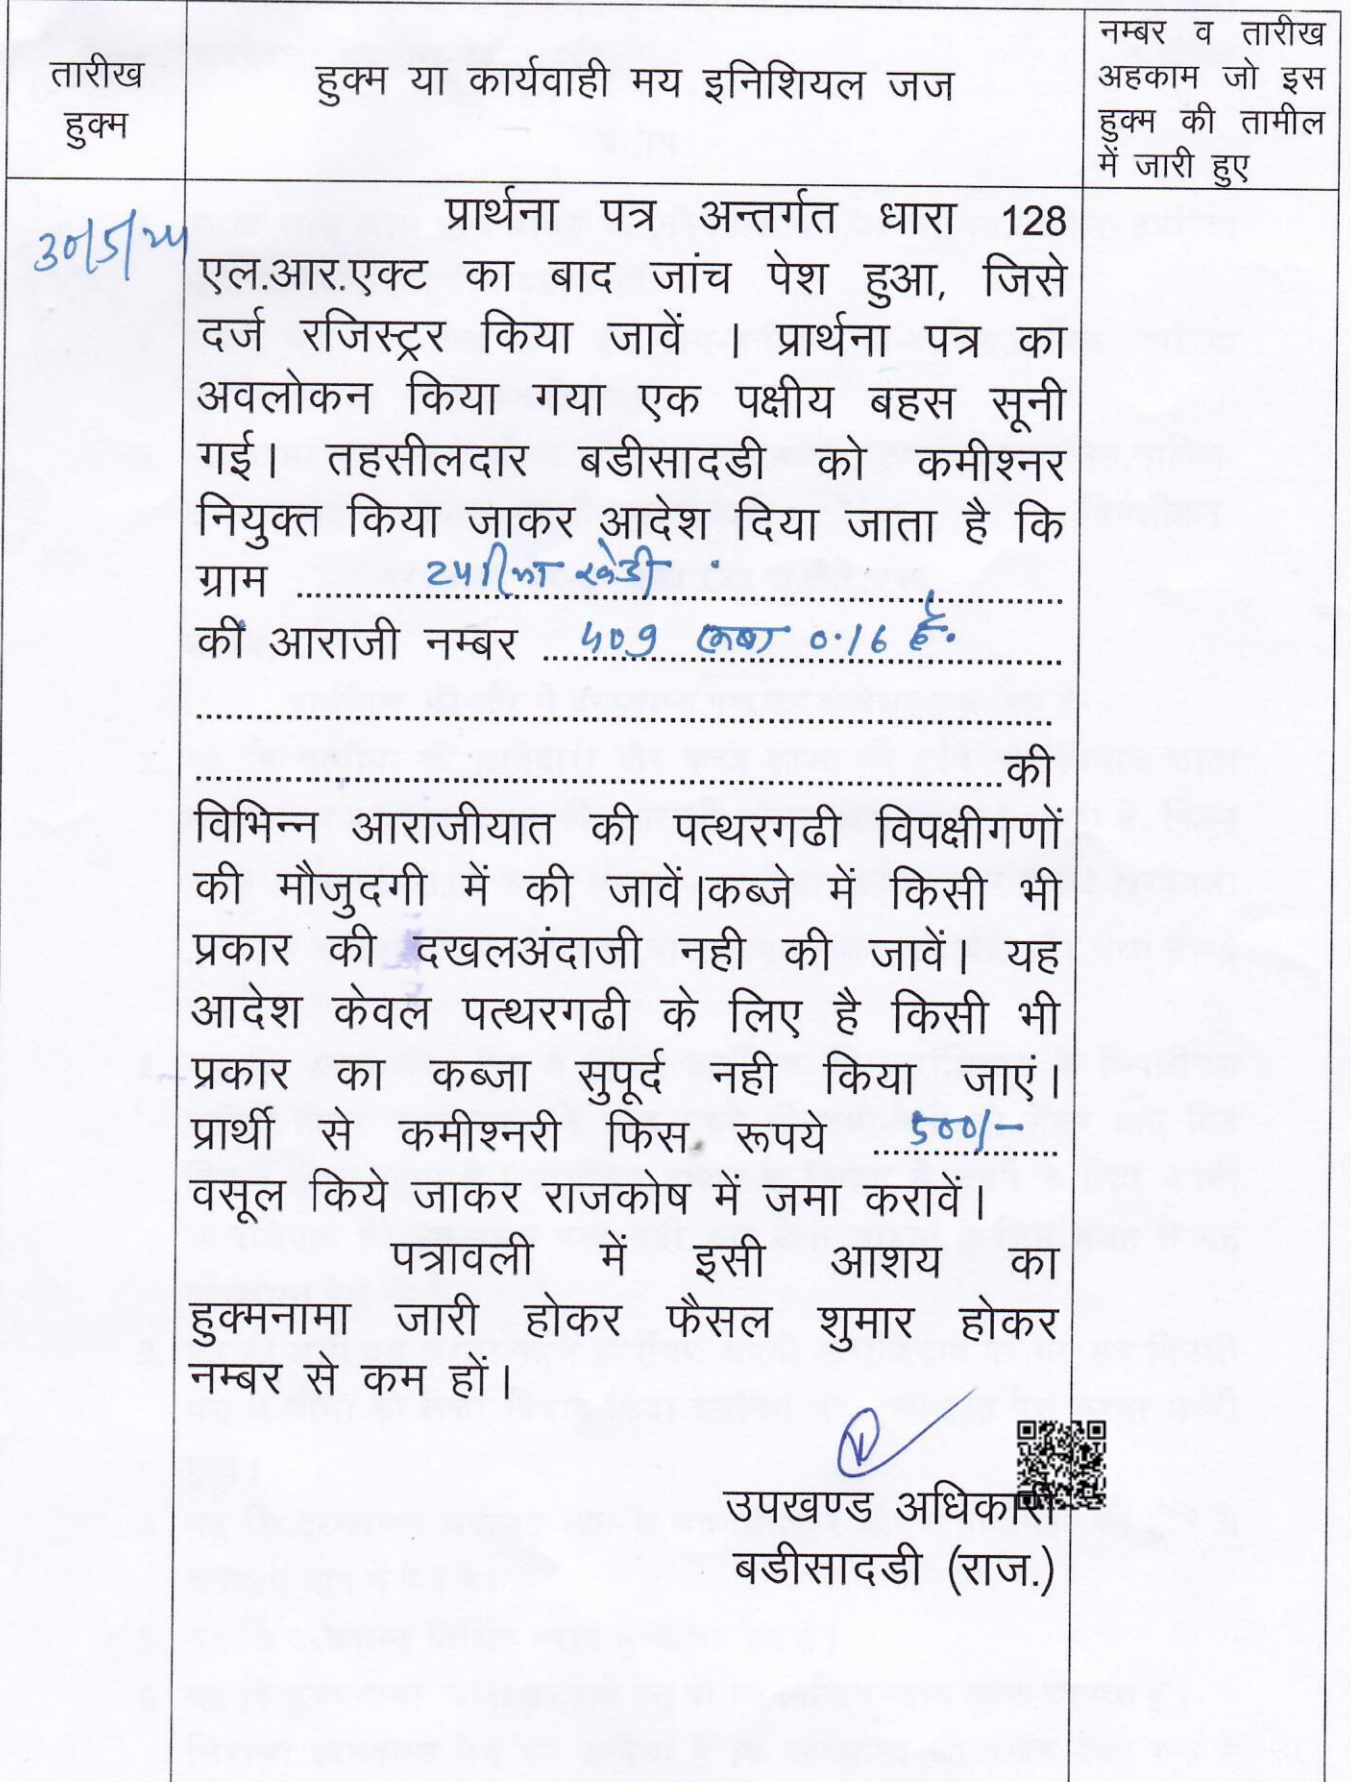 तारीख
हुक्म
हुक्म या कार्यवाही मय इनिशियल जज
नम्बर व तारीख
अहकाम जो इस
हुक्म की तामील
में जारी हुए
30/5/24
प्रार्थना पत्र अन्तर्गत धारा 128
एल.आर.एक्ट का बाद जांच पेश हुआ, जिसे
दर्ज रजिस्ट्रर किया जावें । प्रार्थना पत्र का
अवलोकन किया गया एक पक्षीय बहस सूनी
गई। तहसीलदार बडीसादडी को कमीश्नर
नियुक्त किया जाकर आदेश दिया जाता है कि
ग्राम ..... खेडी
की आराजी नम्बर 409 रकबा 0.16 है.
.....
.....की
विभिन्न आराजीयात की पत्थरगढी विपक्षीगणों
की मौजुदगी में की जावें।कब्जे में किसी भी
प्रकार की दखलअंदाजी नही की जावें। यह
आदेश केवल पत्थरगढी के लिए है किसी भी
प्रकार का कब्जा सुपूर्द नही किया जाएं।
प्रार्थी से कमीश्नरी फिस रूपये 500/-
वसूल किये जाकर राजकोष में जमा करावें।
पत्रावली में इसी आशय का
हुक्मनामा जारी होकर फैसल शुमार होकर
नम्बर से कम हों।
उपखण्ड अधिकारी
बडीसादडी (राज.)